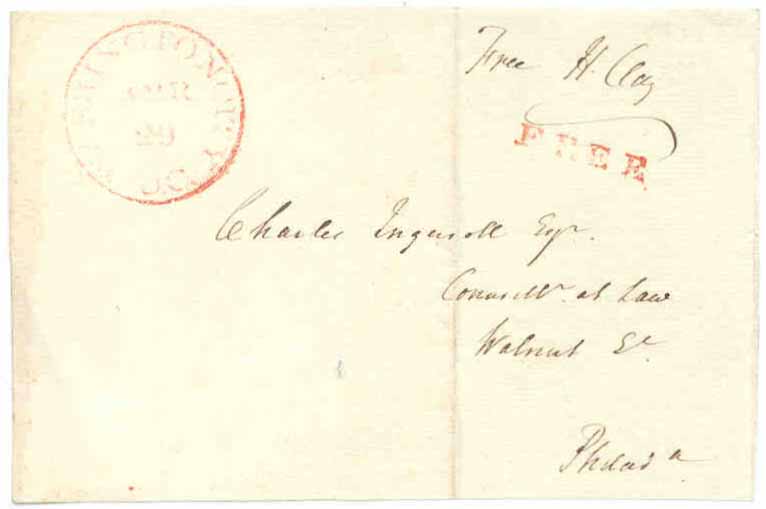 LEXINGTON KY US.
MAR
29
Free H. Clay
FREE
Charles Ingersoll Esqr.
Counsellr. at Law
Walnut St.
Philada